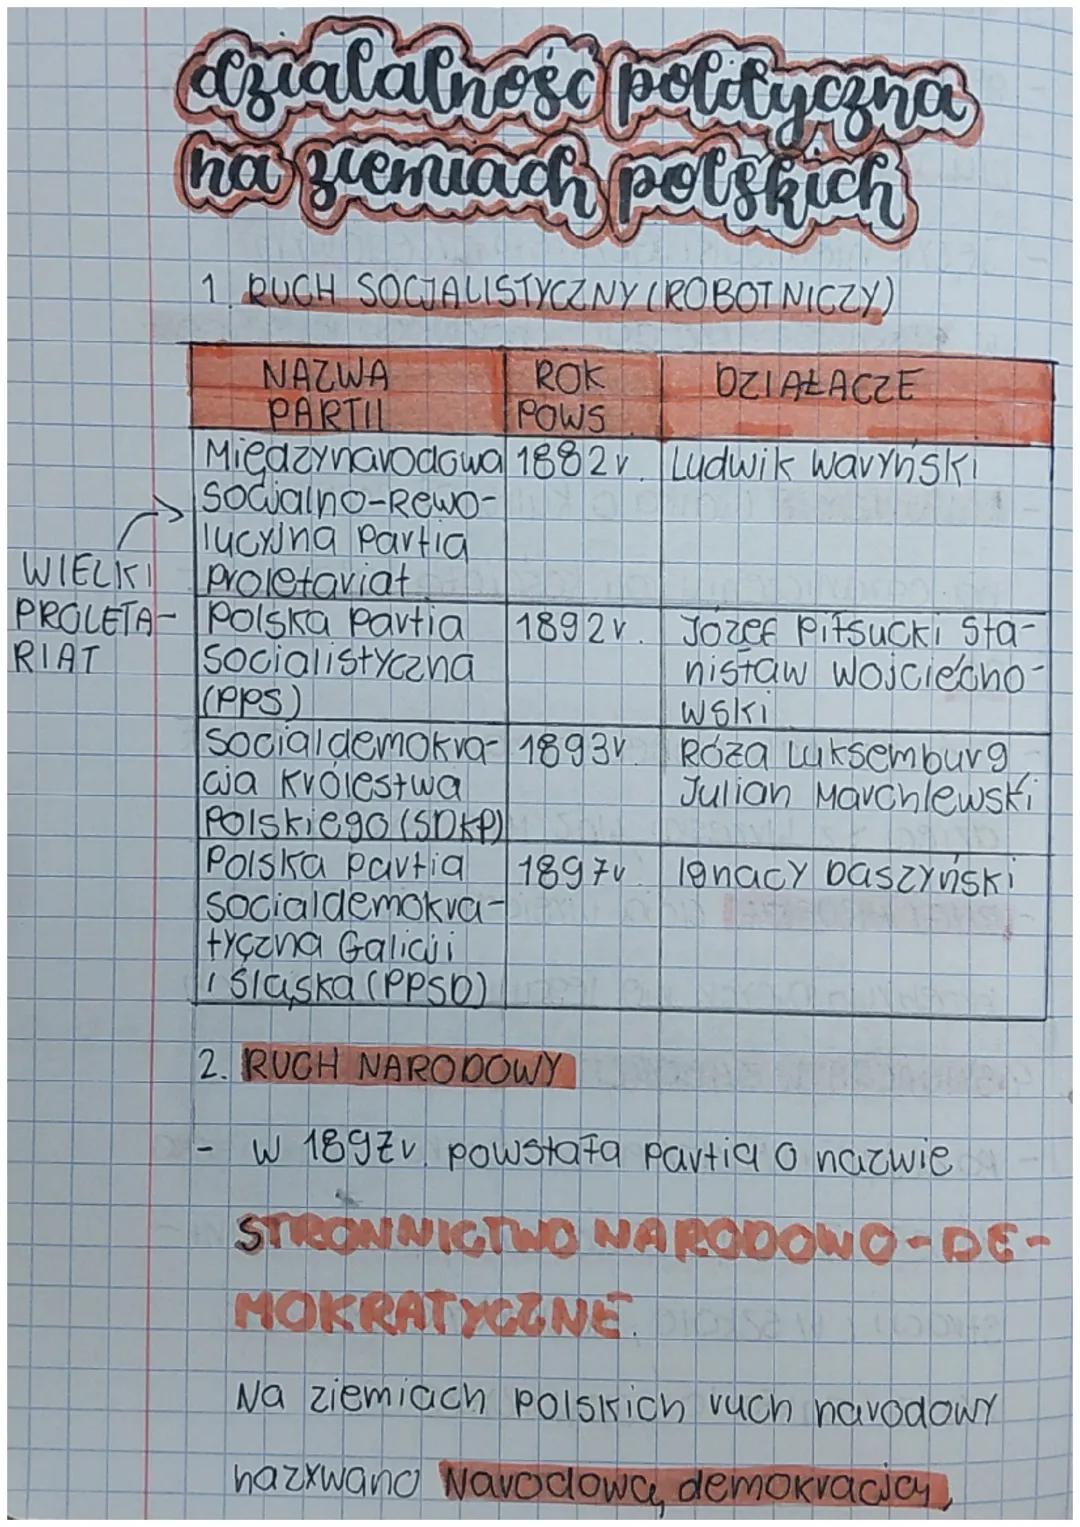 działalność polityczna
na ziemiach polskich
1. RUCH SOCJALISTYCZNY (ROBOTNICZY)
NAZWA
PARTII
ROK
POWS
DZIAŁACZE
Międzynarodowa
Socjalno-Rewo-
lucyjna Partia
Proletariat
1882r.
Ludwik Waryński
WIELKI
PROLETA-
RIAT
Polska Partia
Socjalistyczna
(PPS)
1892r.
Józef Piłsucki Sta-
nisław Wojciecho-
wski
Socjaldemokra-
cja Królestwa
Polskiego (SDKP)
1893r.
Róża Luksemburg
Julian Marchlewski
Polska Partia
Socjaldemokra-
tyczna Galicji
i Śląska (PPSD)
1897r
Ignacy Daszyński
2. RUCH NARODOWY
- w 1897r. powstała partia o nazwie
STRONNICTWO NARODOWO-DE-
MOKRATYCZNE.
Na ziemiach polskich ruch narodowy
nazywano Narodową demokracją,